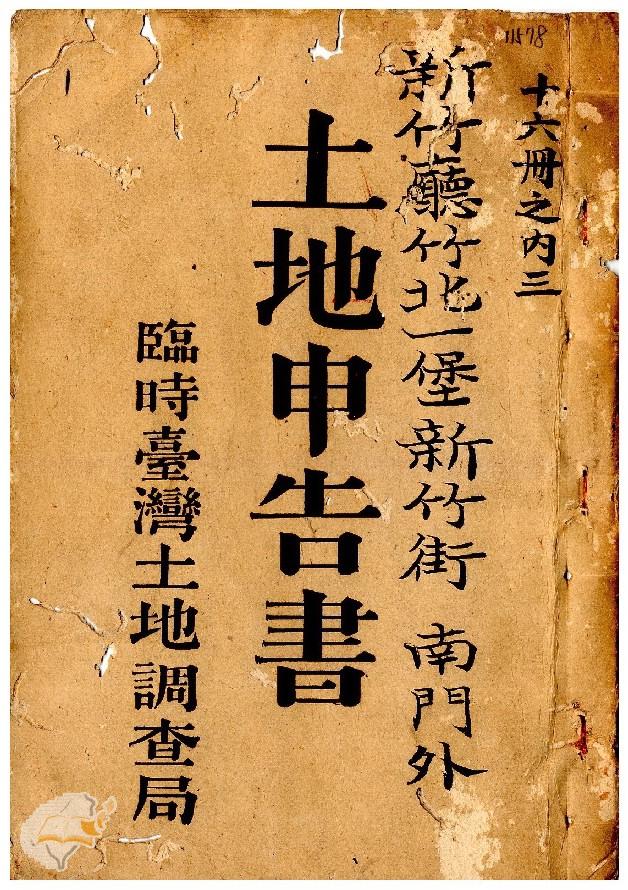 十六冊之内三
新竹廳竹北一堡新竹街 南門外
土地申告書
臨時臺灣土地調查局